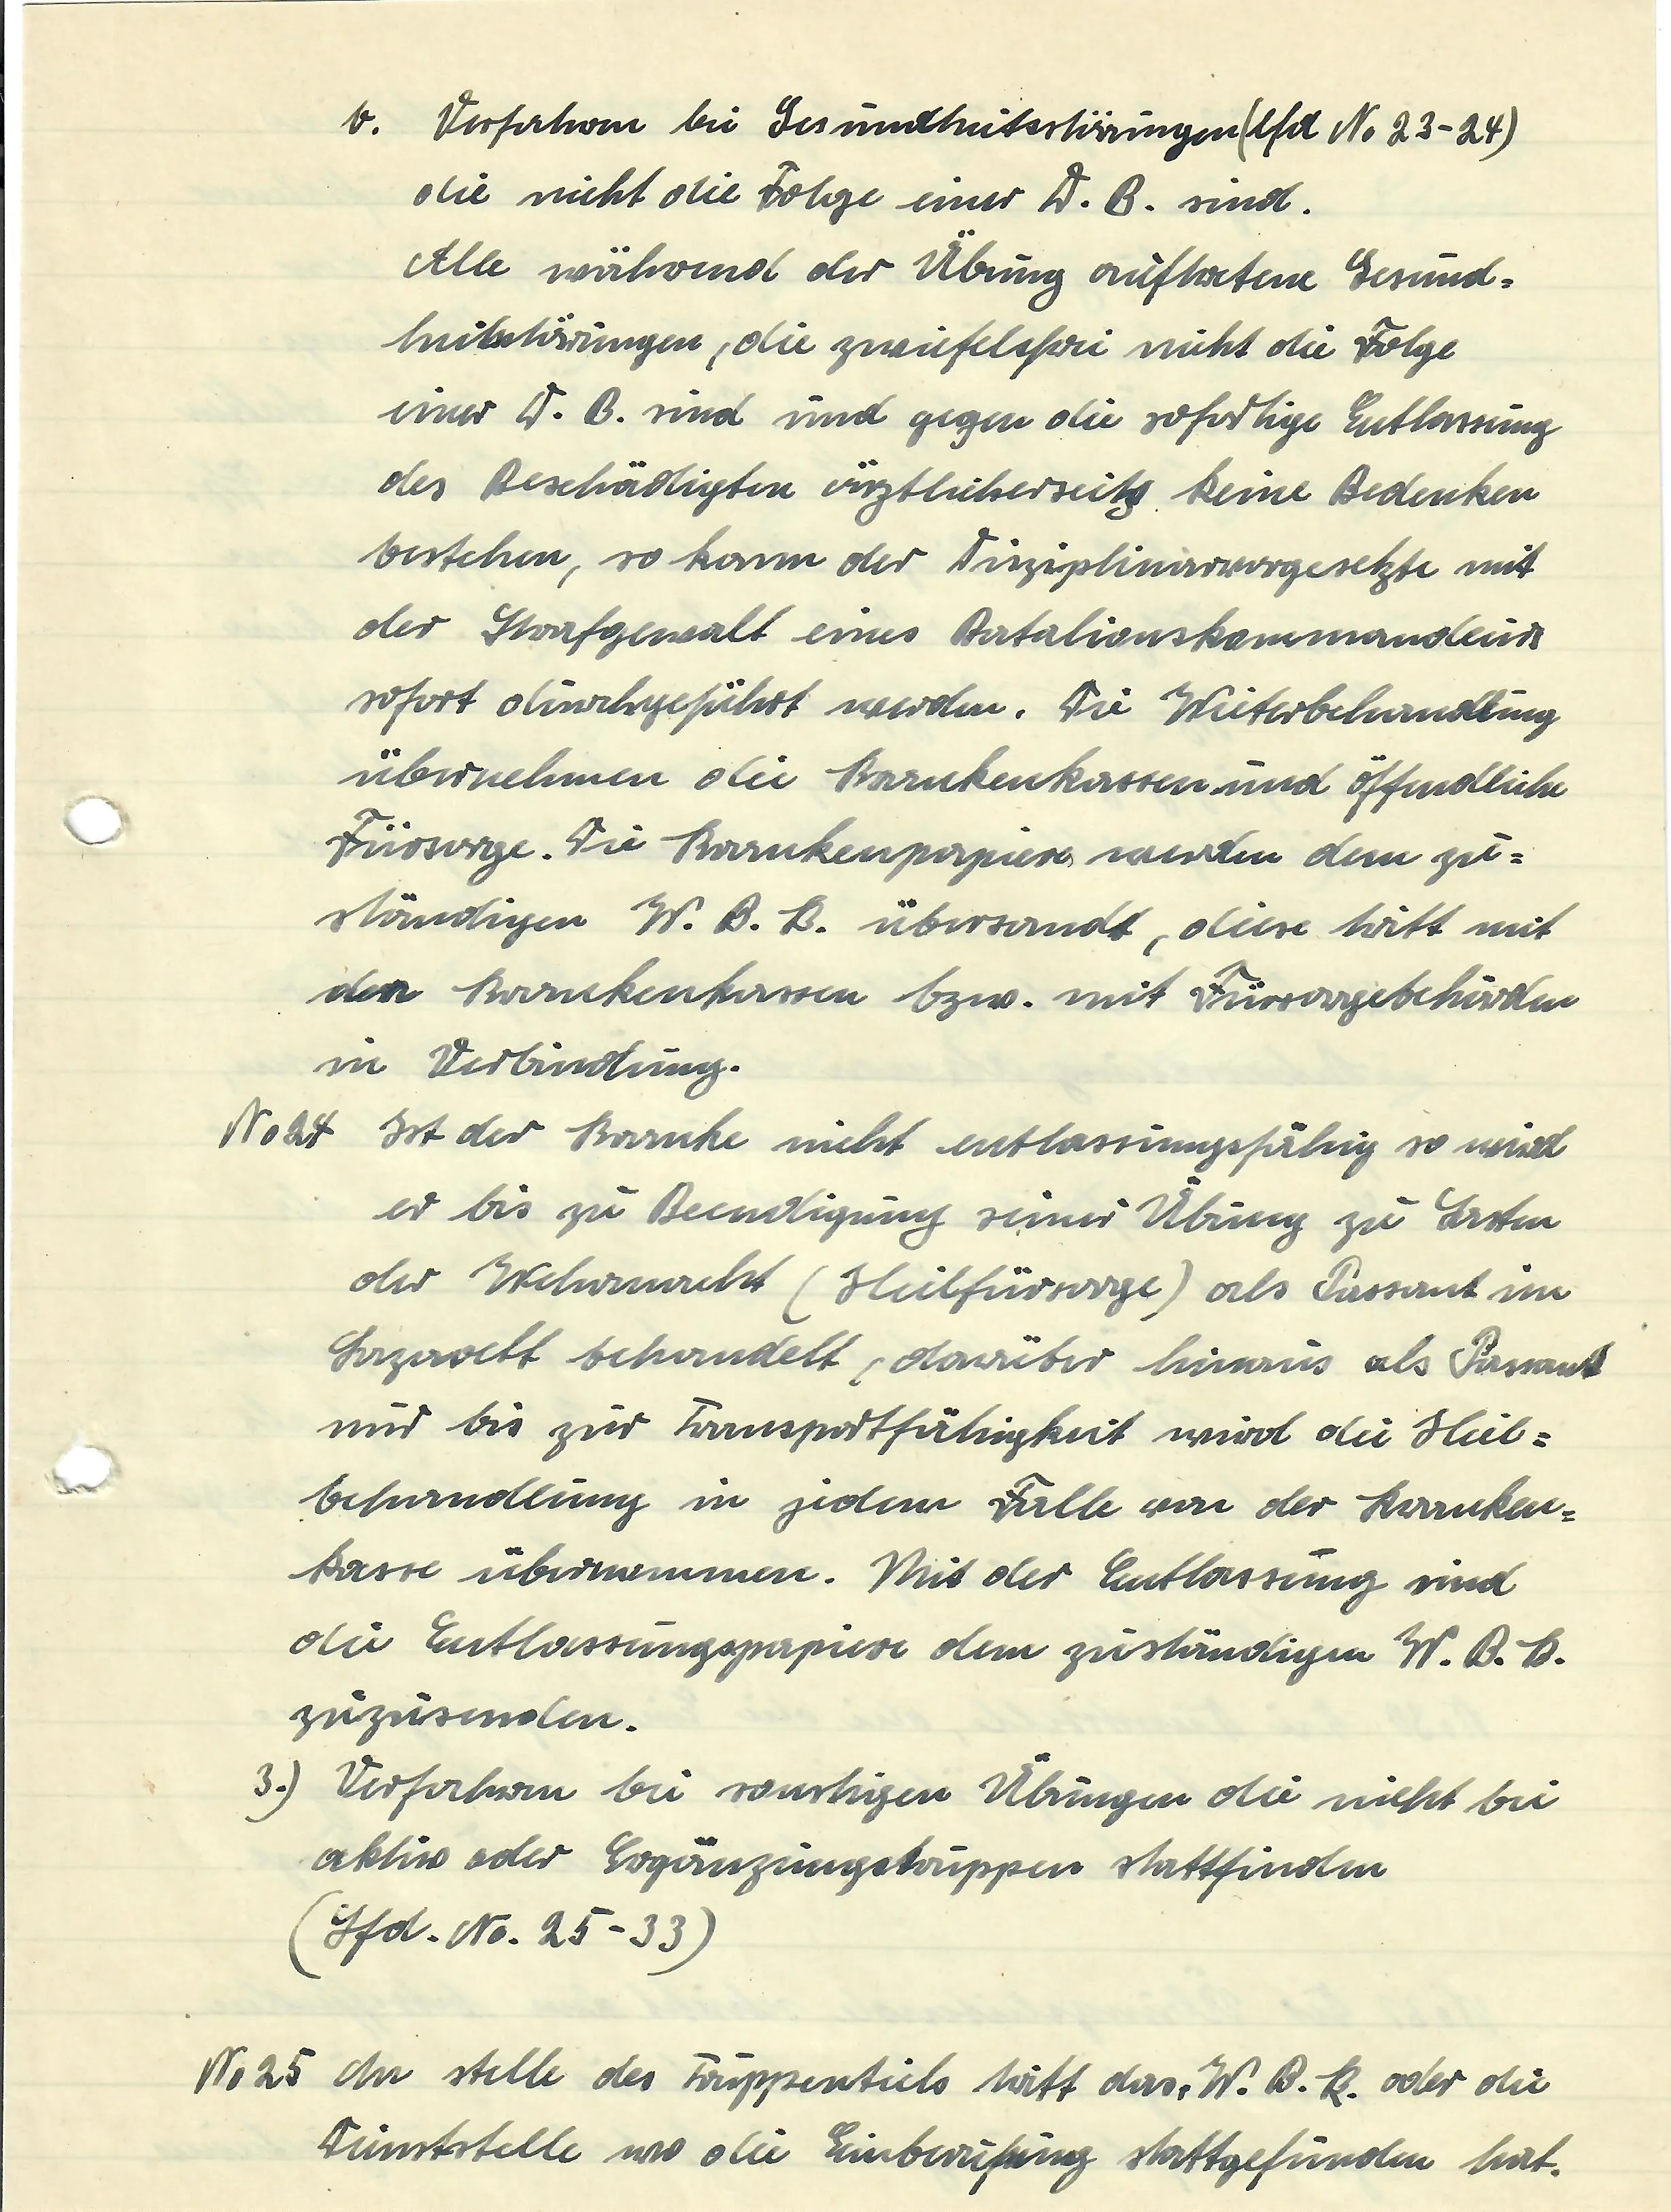 b. Verfahren bei Gesundheitsstörungen (lfd No 23-24)
die nicht die Folge einer D. B. sind.
Alle während der Übung auftretene Gesund=
heitstörungen, die zweifelsfrei nicht die Folge
einer D. B. sind und gegen die sofortige Entlassung
des Beschädigten ärztlicherseits keine Bedenken
bestehen, so kann der Disziplinarvorgesetzte mit
der Strafgewalt eines Batalionskommandeurs
sofort durchgeführt werden. Die Weiterbehandlung
übernehmen die Krankenkassen und öffendliche
Fürsorge. Die Krankenpapiere werden dem zu=
ständigen W. B. K. übersandt, diese tritt mit
den Krankenkassen bzw. mit Fürsorgebehörden
in Verbindung.
No 24 Ist der Kranke nicht entlassungsfähig so wird
er bis zu Beendigung seiner Übung zu Lasten
der Wehrmacht (Heilfürsorge) als Passant im
Lazarett behandelt, darüber hinaus als Passant
nur bis zur Transportfähigkeit wird die Heil=
behandlung in jedem Falle von der Kranken=
kasse übernommen. Mit der Entlassung sind
die Entlassungspapiere dem zuständigen W. B. K.
zuzusenden.
3.) Verfahren bei sonstigen Übungen die nicht bei
aktiv oder Ergänzungstruppen stattfinden
(Lfd. No. 25-33)
No 25 An stelle des Truppenteils tritt das W. B. K. oder die
Dienststelle wo die Einberufung stattgefunden hat.